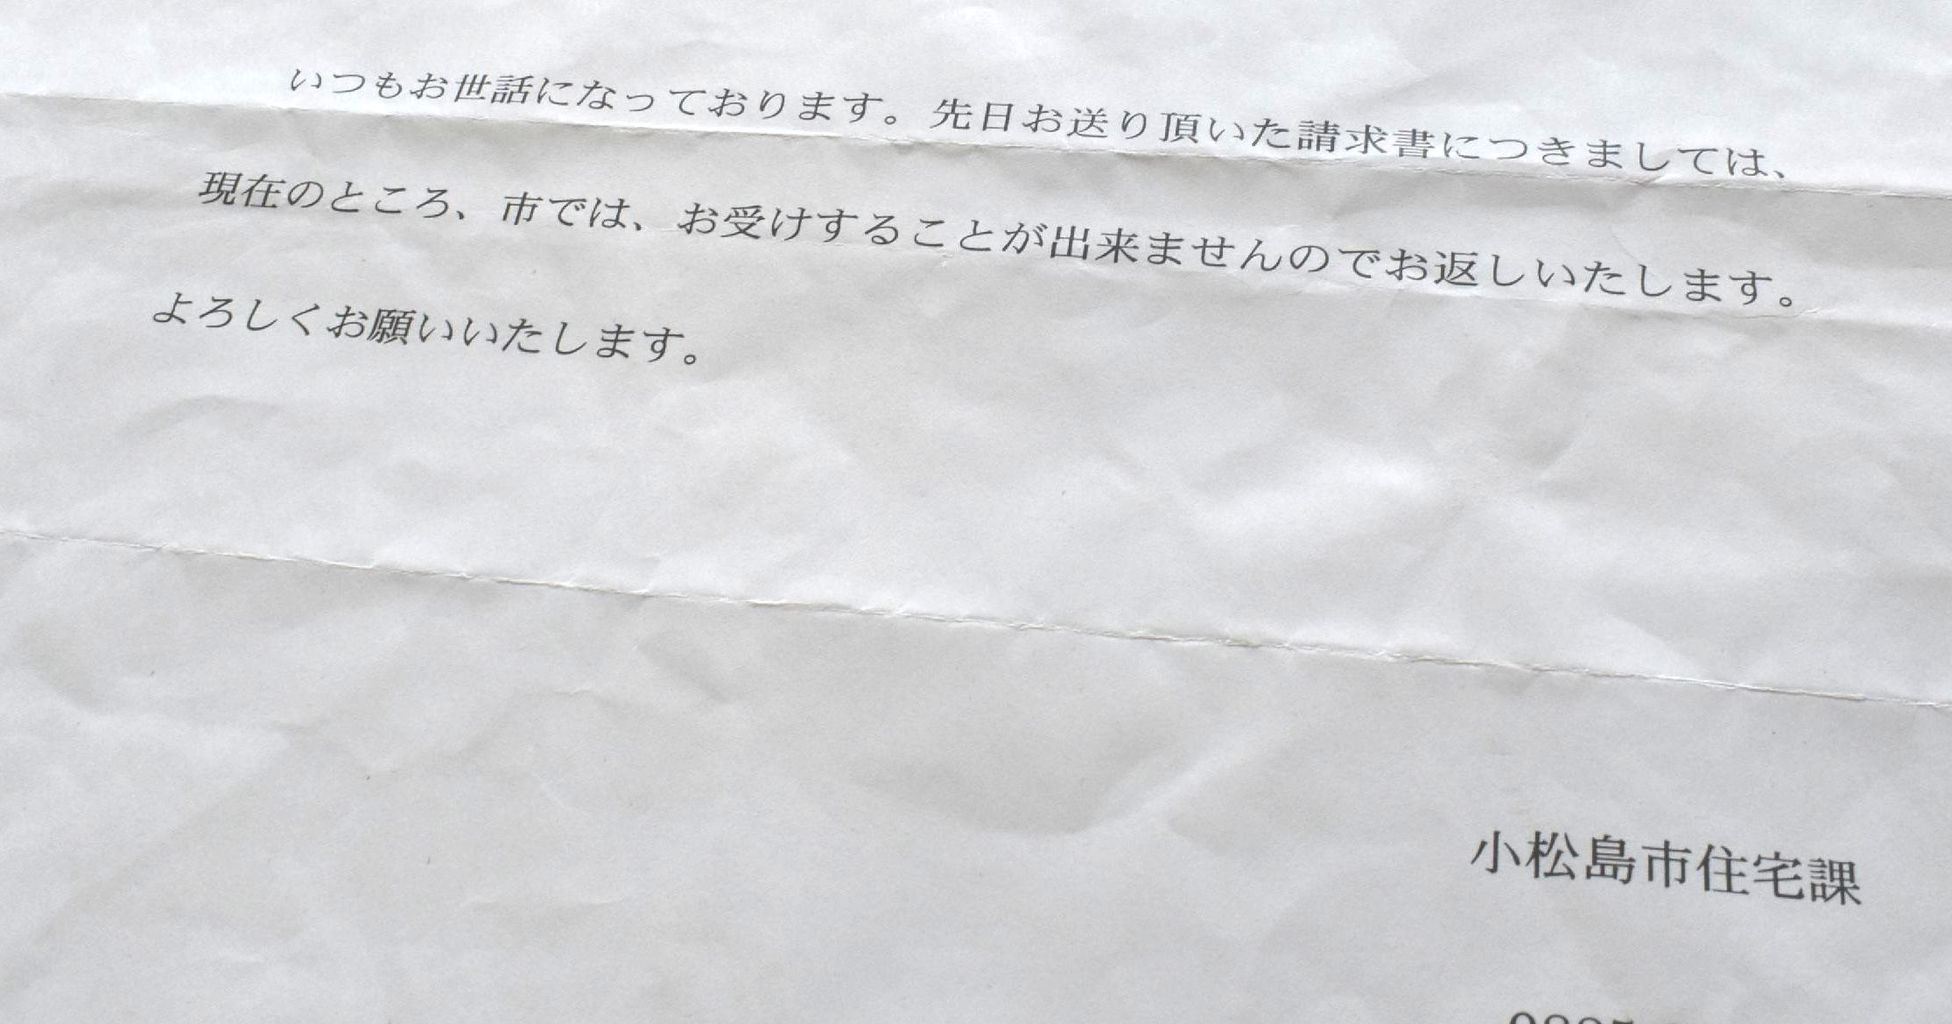 いつもお世話になっております。先日お送り頂いた請求書につきましては、
現在のところ、市では、お受けすることが出来ませんのでお返しいたします。
よろしくお願いいたします。
小松島市住宅課